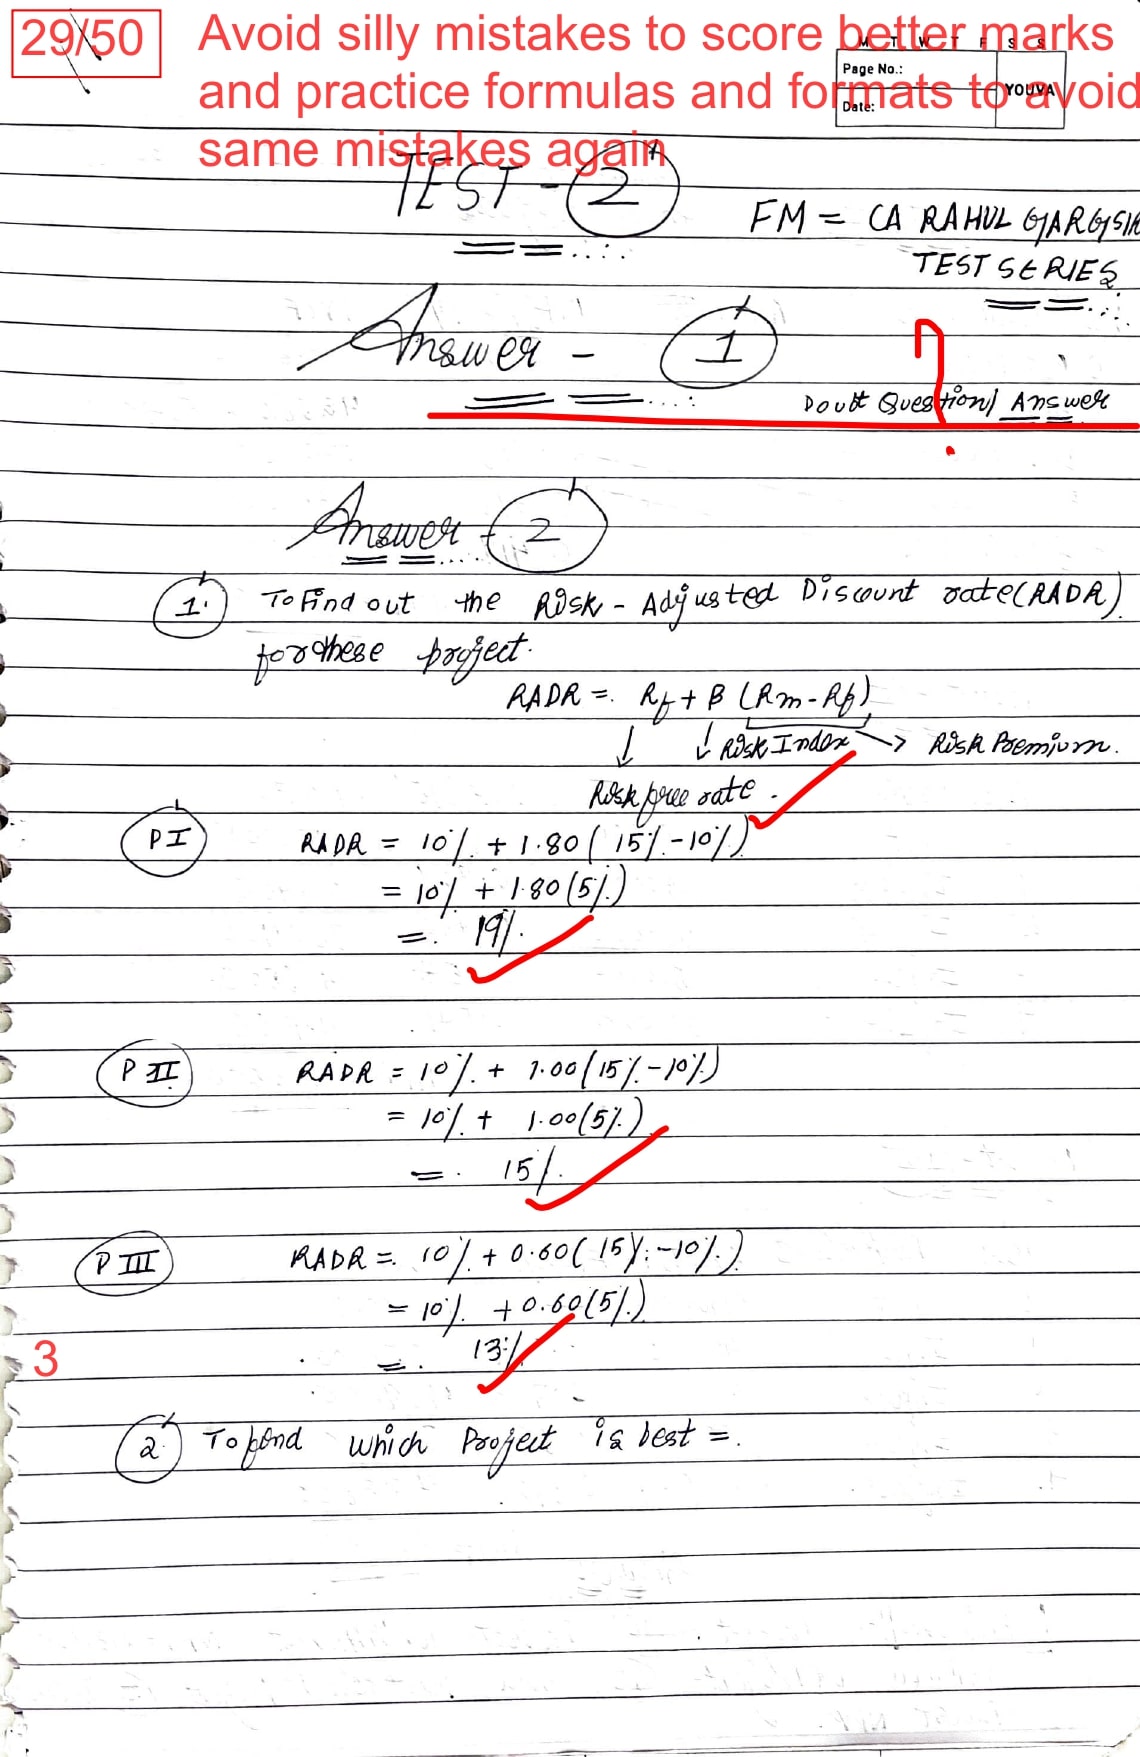 29/50
Avoid silly mistakes to score better marks
and practice formulas and formats to avoid
same mistakes again
M T W T F S S
Page No.:
YOUVA
Date:
TEST - 2
FM = CA RAHUL GARG SIR
TEST SERIES
Answer - 1
?
Doubt Question/ Answer
Answer - 2
1. To Find out the Risk - Adjusted Discount rate (RADR)
for these project.
RADR = Rf + B (Rm - Rf)
Risk Index → Risk Premium.
Risk free rate.
P I RADR = 10% + 1.80 (15% - 10%)
= 10% + 1.80 (5%)
= 19%.
P II RADR = 10% + 1.00 (15% - 10%)
= 10% + 1.00 (5%)
= 15%.
P III RADR = 10% + 0.60 (15% - 10%)
= 10% + 0.60 (5%)
3
= 13%
2. To find which Project is best =.